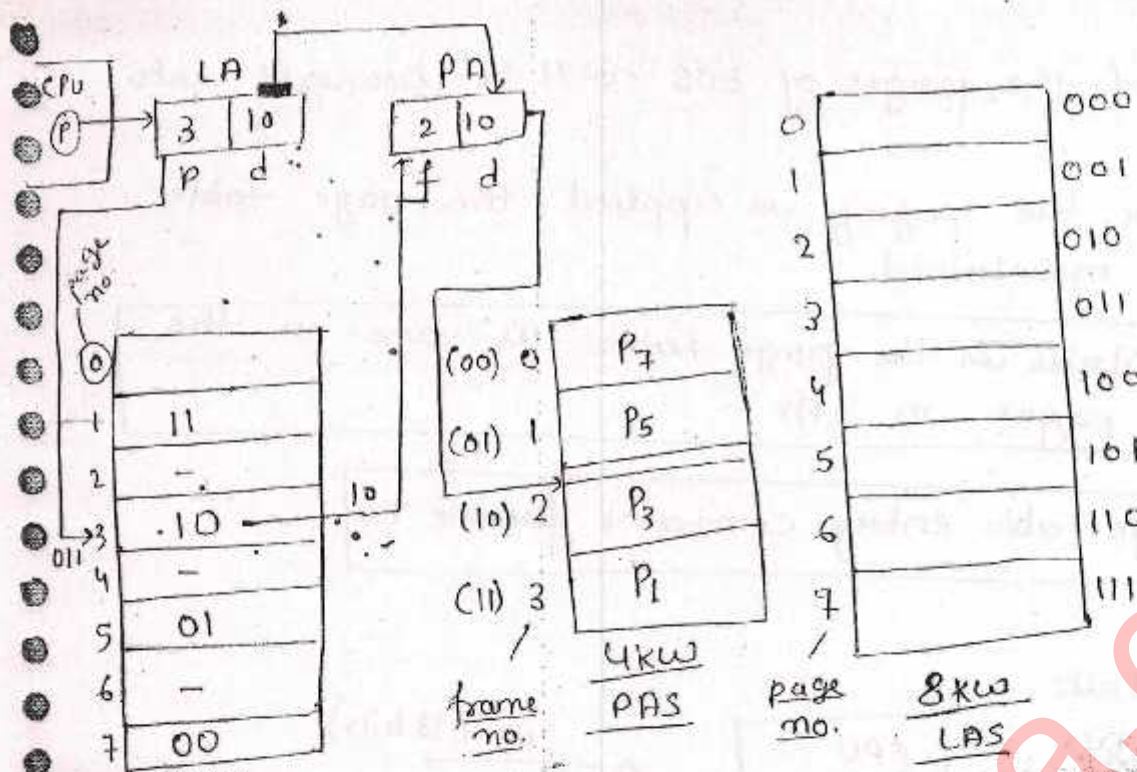 CPU
P
LA
3 10
p d
PA
2 10
f d
page no
0
1 11
2 -
3 10
011
4 -
5 01
6 -
7 00
10
(00) 0 P7
(01) 1 P5
(10) 2 P3
(11) 3 P1
frame no.
4KW
PAS
0 000
1 001
2 010
3 011
4 100
5 101
6 110
7 111
page no.
8KW
LAS